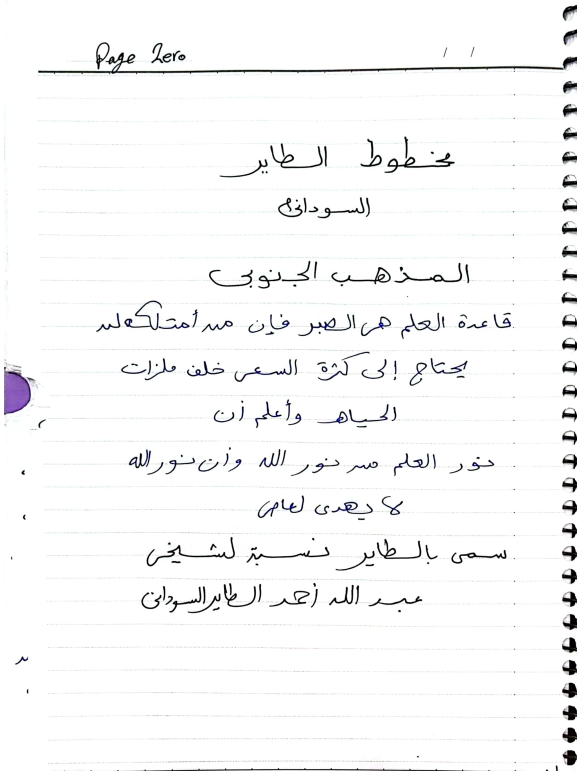 Page Zero
/ /
مخطوط الطاير
السوداني
المذهب الجنوبى
قاعدة العلم هى الصبر فإن من أمتلكه لن
يحتاج إلى كثرة السعى خلف ملزات
الحياه وأعلم أن
نور العلم من نور الله وأن نور الله
لا يهدى لعاصى
سمى بالطاير نسبة لشيخى
عبد الله أحمد الطاير السودانى